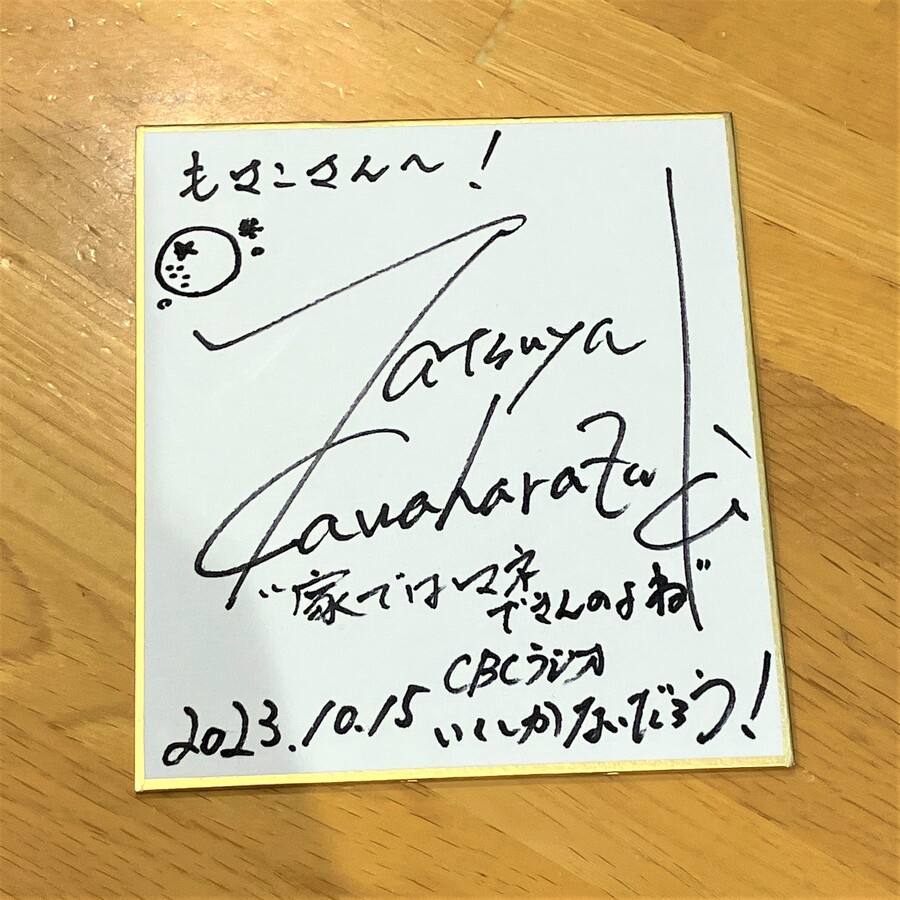 もさこさんへ!
Tatsuya
Kawaharazuki
"家ではマネ
できんのよね"
CBCラジオ
2023.10.15 いくしかないだろう!